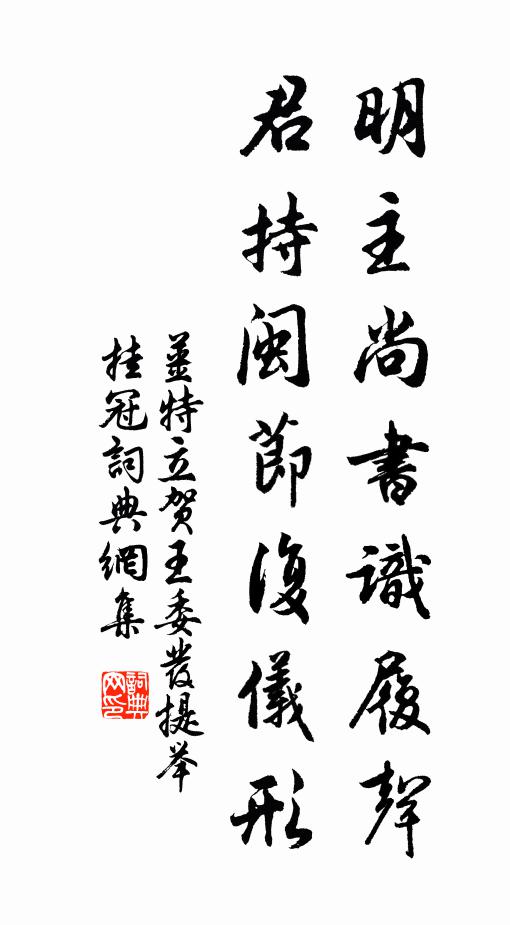 明主尚書識履聲
君持闽節復儀形
姜特立贺王委發提举
挂冠詞典網集
詞典网印